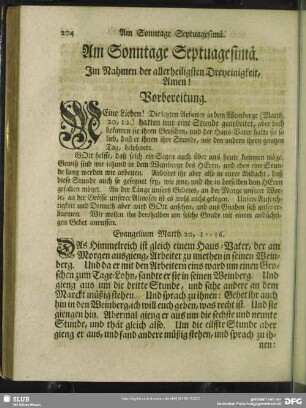 204 Am Sonntage Septuagesimä.
Am Sonntage Septuagesimä.
Im Nahmen der allerheiligsten Dreyeinigkeit,
Amen!
Vorbereitung.
MEine Lieben! Die letzten Arbeiter in dem Weinberge (Matth.
20, 12.) hatten nur eine Stunde gearbeitet, aber doch
bekamen sie ihren Groschen, und der Haus-Vater hatte sie so
lieb, daß er ihnen ihre Stunde, wie den andern ihren gantzen
Tag, belohnete.
GOtt helffe, daß solch ein Segen auch über uns heute kommen möge.
Gewiß sind wir ietzund in dem Weinberge des HErrn, und eben eine Stunde
lang werden wir arbeiten. Arbeitet ihr aber also in eurer Andacht, daß
diese Stunde auch so gesegnet sey, wie jene, und ihr in derselben dem HErrn
gefallen möget. An der Länge unsers Gebetes, an der Menge unserer Worte,
an der Grösse unserer Aemsigkeit ist es wohl nicht gelegen. Unsere Aufrichtigkeit
und Demuth aber wird GOtt ansehen, und aus Gnaden sich unser
erbarmen. Wir wollen ihn deshalben um solche Gnade mit einem andächtigen
Gebet anruffen.
Evangelium Matth. 20, 1--16.
DAs Himmelreich ist gleich einem Haus-Vater, der am
Morgen ausgieng, Arbeiter zu miethen in seinen Weinberg.
Und da er mit den Arbeitern eins ward um einen Groschen
zum Tage-Lohn, sandte er sie in seinen Weinberg. Und
gieng aus um die dritte Stunde, und sahe andere an dem
Marckt müßig stehen. Und sprach zu ihnen: Gehet ihr auch
hin in den Weinberg, ich will euch geben, was recht ist. Und sie
giengen hin. Abermal gieng er aus um die sechste und neunte
Stunde, und thät gleich also. Um die eilffte Stunde aber
gieng er aus, und fand andere müßig stehen, und sprach zu ihnen:
SLUB
Wir führen Wissen.